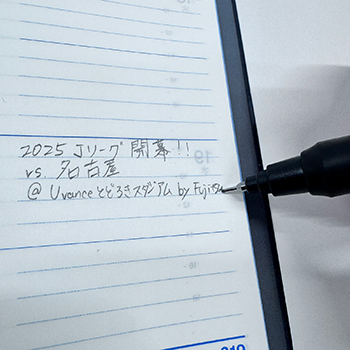 2025 Jリーグ 開幕!!
vs. 名古屋
@ Uvance とどろきスタジアム by Fujitsu
19